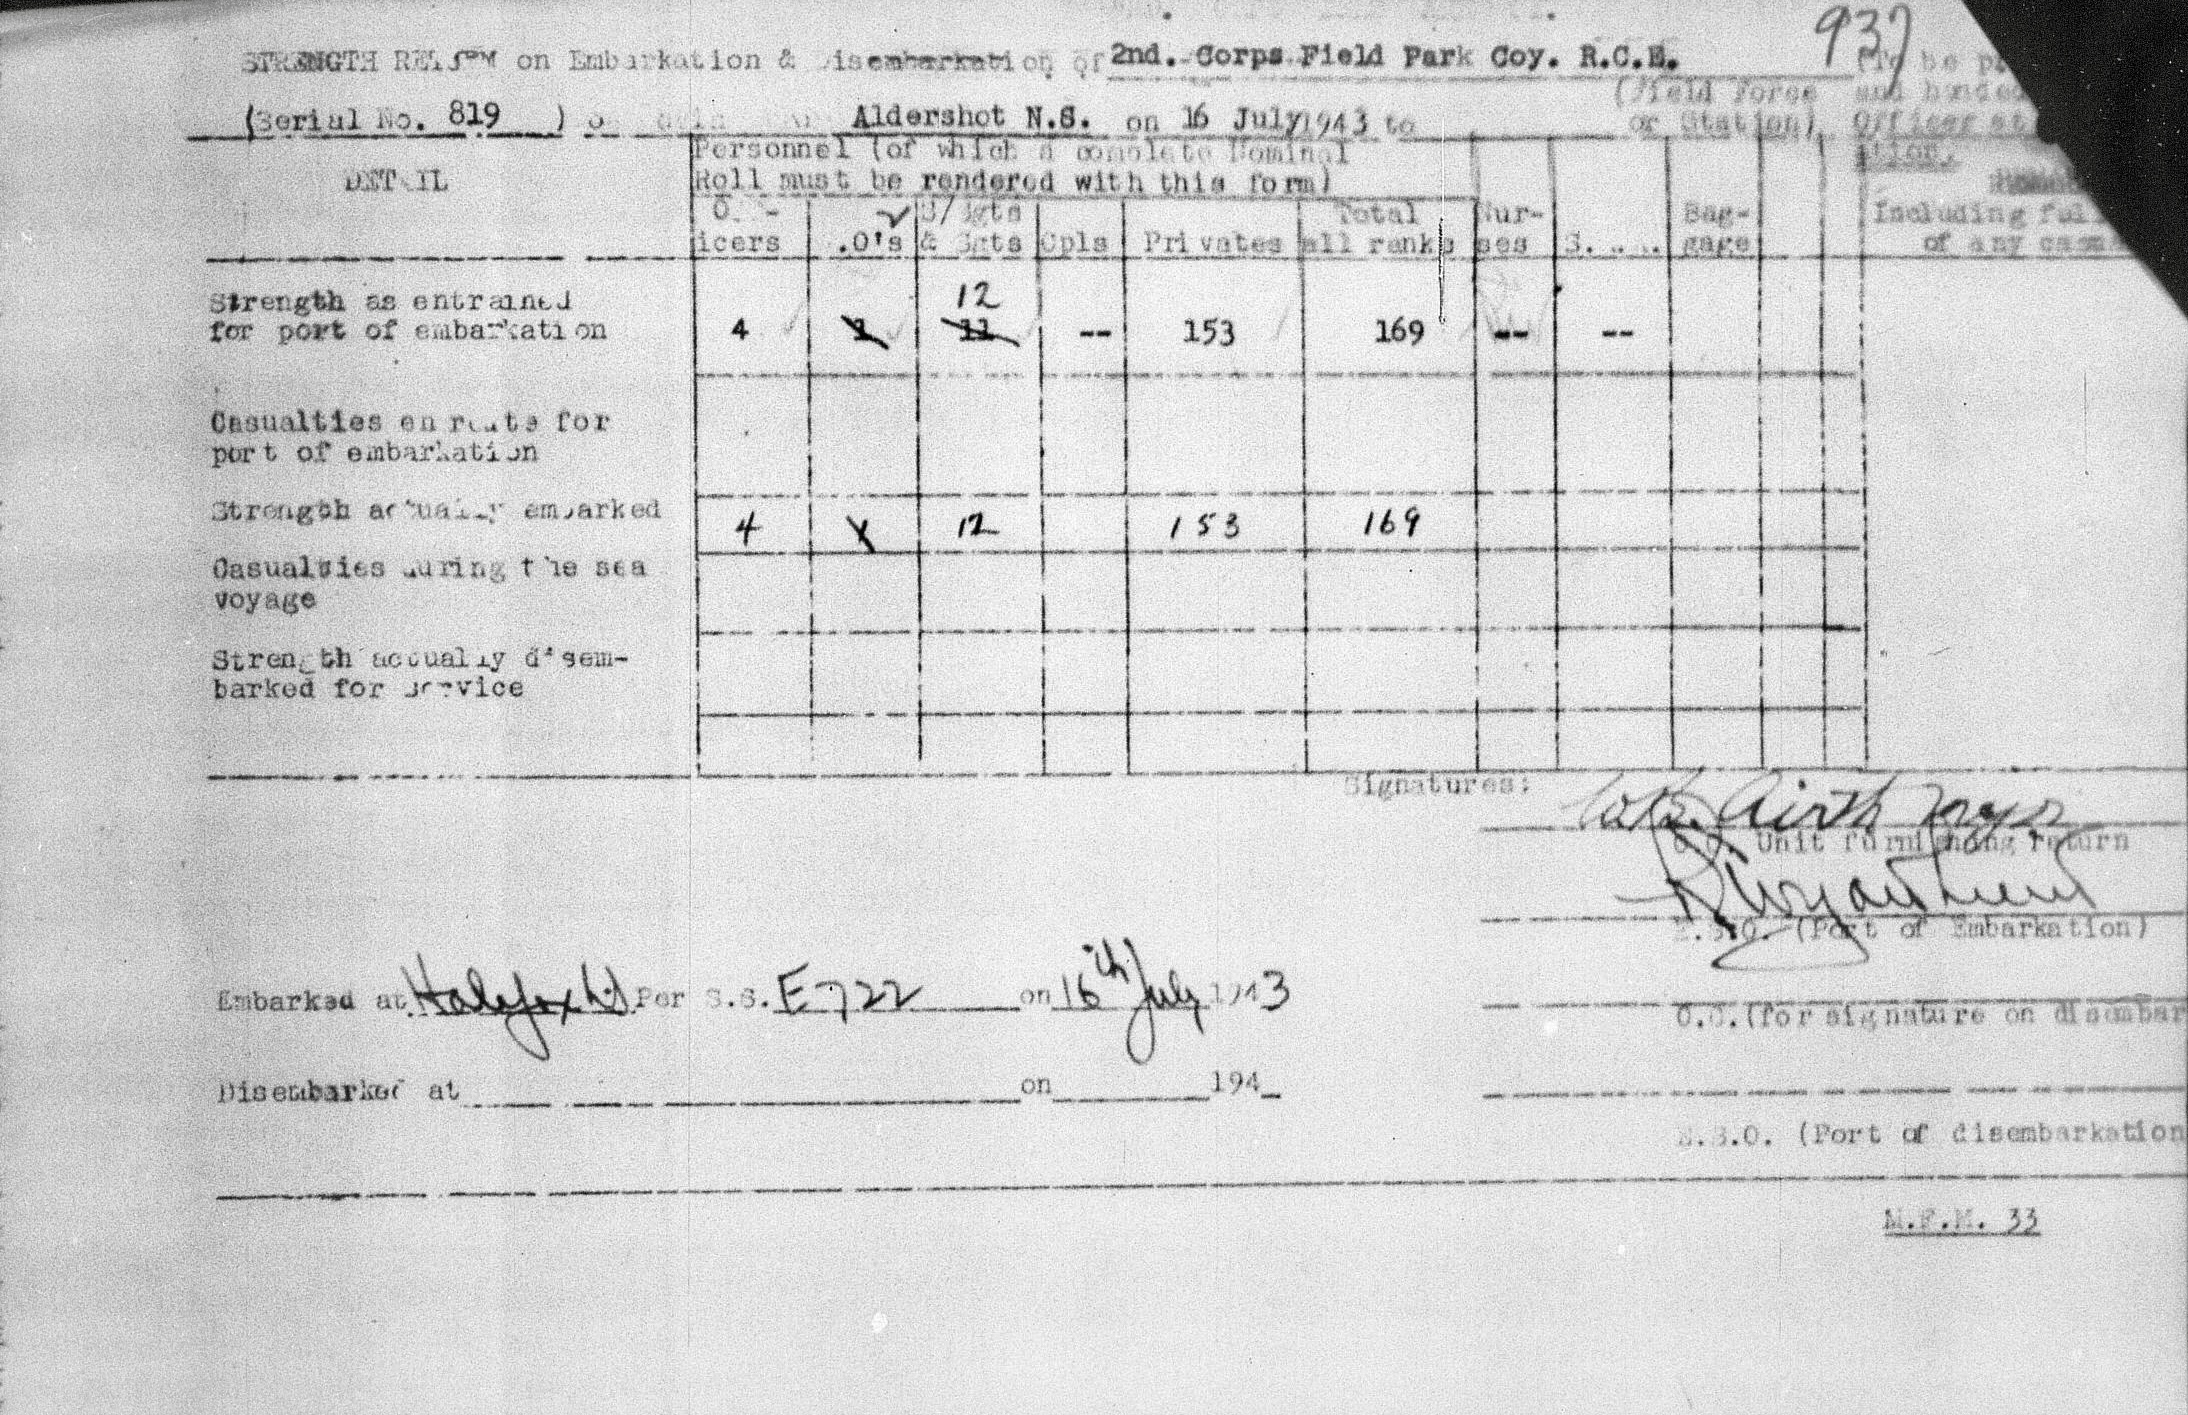 937
STRENGTH RETURN on Embarkation & Disembarkation of 2nd. Corps Field Park Coy. R.C.E.
(To be
(Serial No. 819 ) Aldershot N.S. on 16 July 1943 to
(Field Force or Station)
and handed
Officer at
ation.
DETAIL
Personnel (of which a complete Nominal
Roll must be rendered with this form)
icers .O's S/Sgts & Sgts Cpls Privates Total all ranks Nur-ses Bag-gage
Including full
of any
Strength as entrained
for port of embarkation 4 1 11 12 -- 153 169 -- --
Casualties en route for
port of embarkation
Strength actually embarked 4 1 12 153 169
Casualties during the sea
voyage
Strength actually disem-
barked for service
Signatures:
Airth Major
O.C. Unit furnishing return
E.S.O. (Port of Embarkation)
Embarked at Halifax Per S.S. E722 on 16th July 1943
O.C. (for signature on disembar
Disembarked at on 194_
E.S.O. (Port of disembarkation
M.F.M. 33